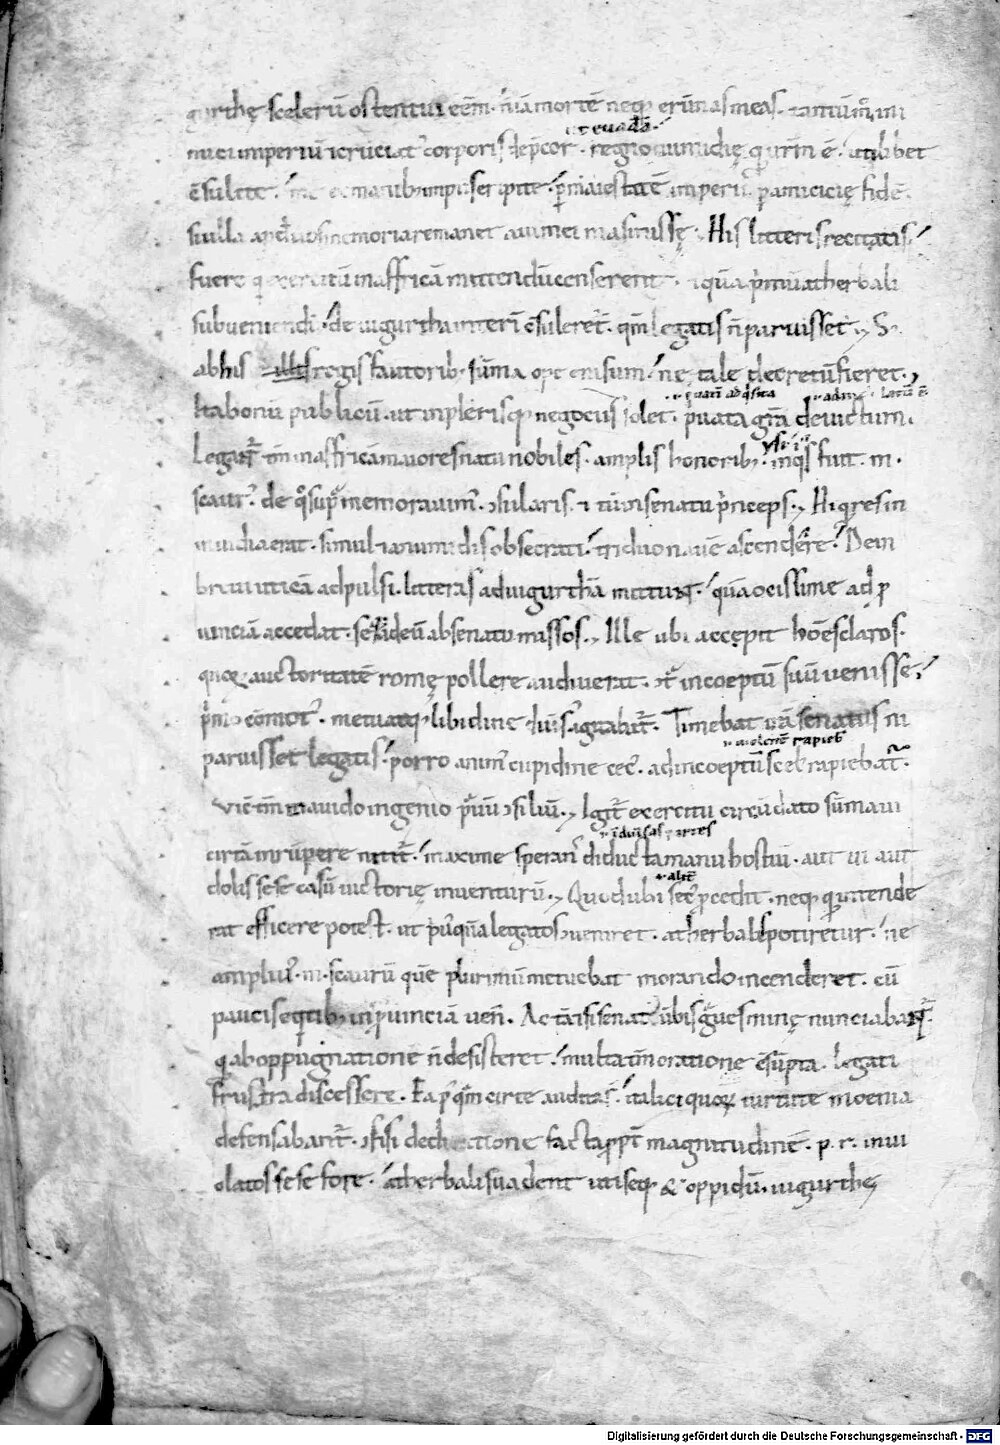 gurthę scelerū ostentui eēm. iā mortē neq; erūnas meas. tantūm ini
ut euadā
mici imperiū & cruciat᾿ corporis dep̄cor. regno numidię q̄ ur̄m ē. ut libet
c̄sulite. me ex manib; impiis eripite. p̄ maiestatē imperii p̄ amicicię fidē.
si ulla apd̄ uos memoria remanet aui mei masinissę. His litteris recitatis
fuere q̄ exercitū in affricā mittendū censerent. & quā p̄mū atherbali
subueniendū. de iugurtha interī c̄suleret̄. qm̄ legatis n̄ paruisset. S;
ab his illis regis fautorib; sūma ope enisum. ne tale decretū fieret.
Ita bonū publicū. ut in plerisq; negociis solet. p̄uata gr̄a deuictum.
Legant̄ tm̄ in affricā maiores natu nobiles. amplis honorib; in q̄s fuit. m.
scaur᾿. de q̊ sup̄ memorauim᾿. ɔsularis. & tū in senatu p̄nceps. Hi q̄ res in
inuidia erat. simul & a numidis obsecrati. triduo nauē ascendere. Dein
breui uticā adpulsi. litteras ad iugurthā mittunt. quā ocissime ad p̄
uinciā accedat. se ad eū ab senatu missos. Ille ubi accepit hoēs claros.
quoꝝ auctoritatē romę pollere audiuerat. ct̄ inceptū suū uenisse.
p̄mo cōmot᾿. metu atq; libidine dius᾿ agitabat̄. Timebat irā senatus ni
paruisset legatis. porro anim᾿ cupidine cec᾿. ad inceptū scel᾿ rapiebat̄.
Vic̄ tm̄ in auido ingenio p̄uū ɔsiliū. Igit̄ exercitu circūdato sūma ui
in diuersas partes
cirtā inrūpere nitit̄. maxime sperans diducta manu hostiū. aut ui aut
dolis sese casū uictorię inuenturū. Quod ubi sec᾿ p̄cedit. neq; q̄ intende
rat efficere potest. ut p̄us quā legatos ɔueniret. atherbale potiretur. ne
ampli᾿. m. scaurū quē plurimū metuebat morando incenderet. cū
paucis eq̄tib; in p̄uinciā uen̄. Ac tāisi senat᾿ ūbis g̊ues minę nunciabant̄.
q̄ ab oppugnatione n̄ desisteret. multa tm̄ oratione c̄sūpta. legati
frustra discessere. Ea p᾿ qm̄ cirte audita s᾿. italici quoꝝ uirtute moenia
defensabant̄. ɔfisi deditione facta p̄pt̄ magnitudinē. p. r. inui
olatos sese fore. atherbali suadent uti seq; & oppidū. iugurthę
Digitalisierung gefördert durch die Deutsche Forschungsgemeinschaft - DFG